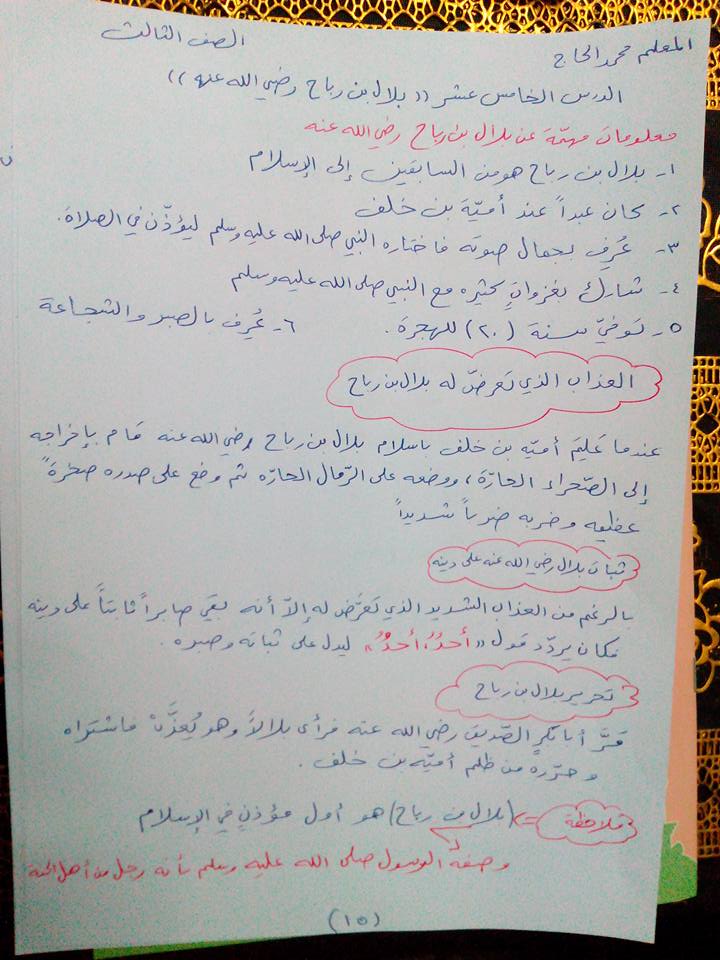 المعلم محمد الحاج
الصف الثالث
الدرس الخامس عشر ((بلال بن رباح رضي الله عنه))
معلومات مهمّة عن بلال بن رباح رضي الله عنه
١- بلال بن رباح هو من السابقين إلى الإسلام
٢- كان عبداً عند أميّة بن خلف
٣- عُرِف بجمال صوته فاختاره النبي صلى الله عليه وسلم ليؤذّن في الصلاة.
٤- شارك بغزواتٍ كثيره مع النبي صلى الله عليه وسلم
٥- توفيّ سنة (٢٠) للهجرة.
٦- عُرِف بالصبر والشجاعة
العذاب الذي تعرضّ له بلال بن رباح
عندما عَلِمَ أميّه بن خلف باسلام بلال بن رباح رضي الله عنه قام بإخراجه
إلى الصّحراء الحارّة، ووضعه على الرّمال الحارّه ثم وضع على صدره صخرةً
عظيمه وضربه ضرباً شديداً
ثبات بلال رضي الله عنه على دينه
بالرغم من العذاب الشديد الذي تعرَّض له إلاّ أنه بقي صابراً ثابتاً على دينه
فكان يردّد قول «أحدٌ، أحدٌ» ليدل على ثباته وصبره.
تحرير بلال بن رباح
مَرَّ أبا بكرٍ الصّديق رضي الله عنه فرأى بلالاً وهو يُعذَّبْ فاشتراه
وحرّره من ظلم أميّه بن خلف.
ملاحظة => (بلال بن رباح) هو أول مؤذنٍ في الإسلام
وصفهُ الرسول صلى الله عليه وسلم بأنه رجل من أهل الجنة
(١٥)